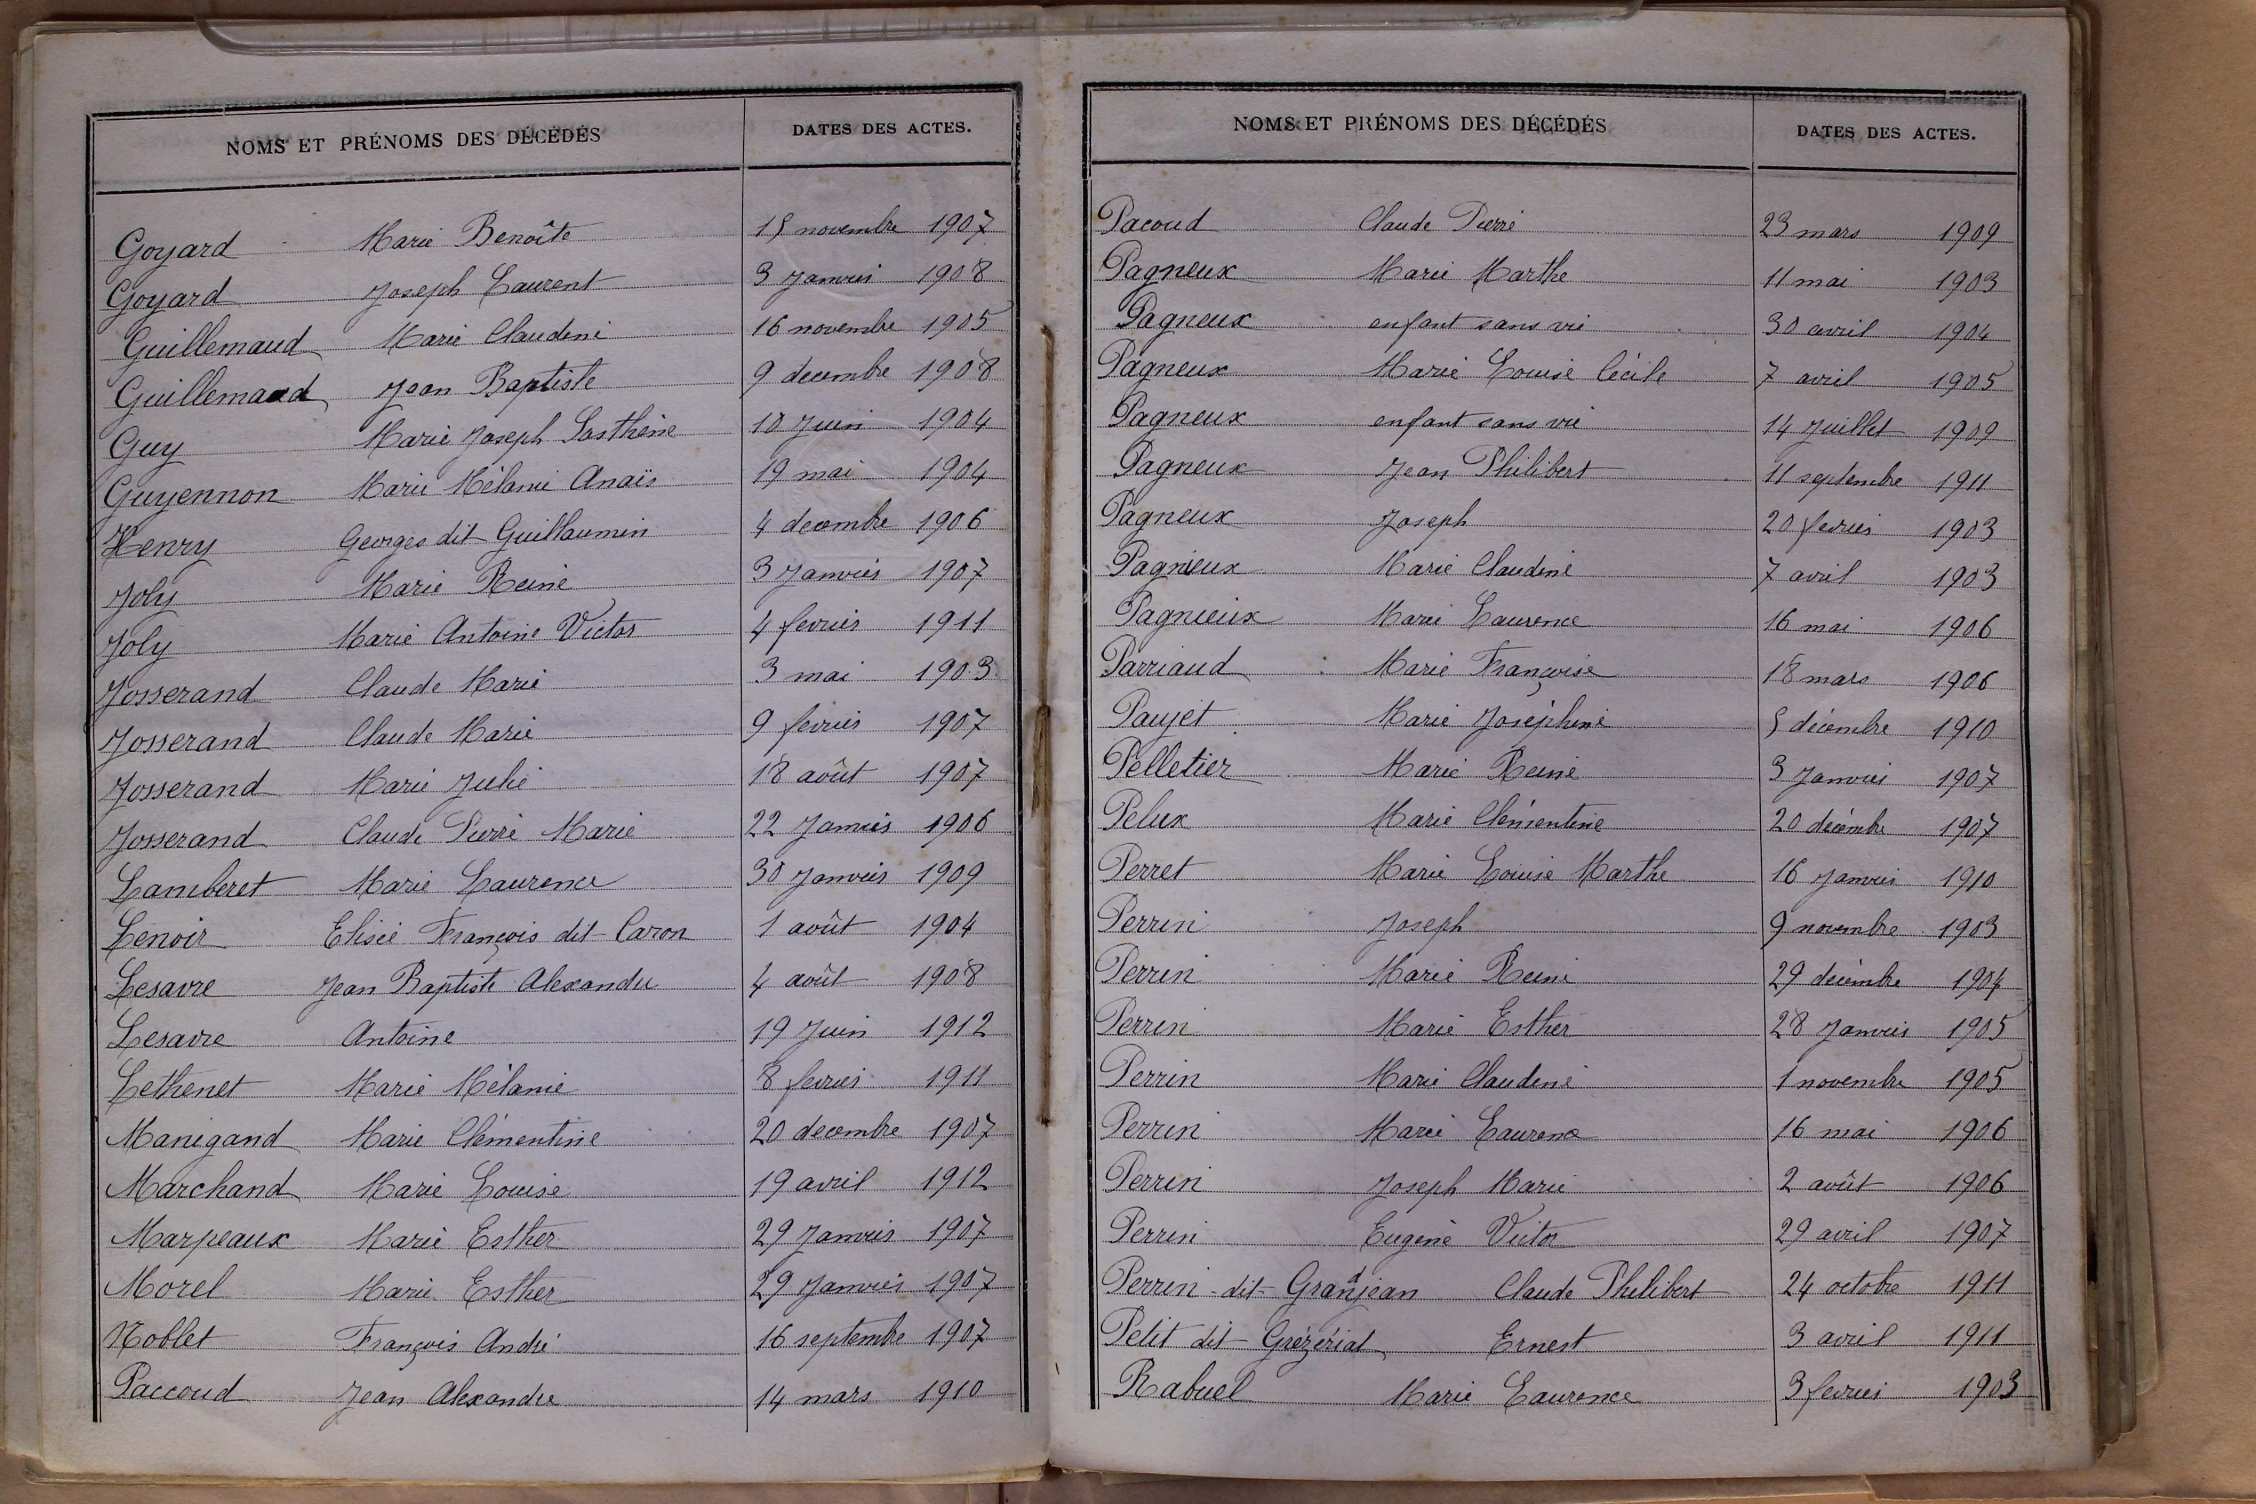 NOMS ET PRÉNOMS DES DÉCÉDÉS DATES DES ACTES.
Goyard Marie Benoîte 15 novembre 1907
Goyard Joseph Laurent 3 Janvier 1908
Guillemaud Marie Claudine 16 novembre 1905
Guillemaud Jean Baptiste 9 decembre 1908
Guy Marie Joseph Sosthène 10 Juin 1904
Guyennon Marie Mélanie Anaïs 19 mai 1904
Henry Georges dit Guillaumin 4 decembre 1906
Joly Marie Reine 3 Janvier 1907
Joly Marie Antoine Victor 4 fevrier 1911
Josserand Claude Marie 3 mai 1903
Josserand Claude Marie 9 fevrier 1907
Josserand Marie Julie 18 août 1907
Josserand Claude Pierre Marie 22 Janvier 1906
Lamberet Marie Laurence 30 Janvier 1909
Lenoir Elisée François dit Caron 1 août 1904
Lesavre Jean Baptiste Alexandre 4 août 1908
Lesavre Antoine 19 Juin 1912
Lethenet Marie Mélanie 8 fevrier 1911
Manigand Marie Clémentine 20 decembre 1907
Marchand Marie Louise 19 avril 1912
Marpeaux Marie Esther 29 Janvier 1907
Morel Marie Esther 29 Janvier 1907
Noblet François André 16 septembre 1907
Paccoud Jean Alexandre 14 mars 1910
NOMS ET PRÉNOMS DES DÉCÉDÉS DATES DES ACTES.
Pacoud Claude Pierre 23 mars 1909
Pagneux Marie Marthe 11 mai 1903
Pagneux enfant sans vie 30 avril 1904
Pagneux Marie Louise Cécile 7 avril 1905
Pagneux enfant sans vie 14 Juillet 1909
Pagneux Jean Philibert 11 septembre 1911
Pagneux Joseph 20 fevrier 1903
Pagnieux Marie Claudine 7 avril 1903
Pagnieux Marie Laurence 16 mai 1906
Parriaud Marie Françoise 18 mars 1906
Paujet Marie Joséphine 5 décembre 1910
Pelletier Marie Reine 3 Janvier 1907
Pelux Marie Clémentine 20 décembre 1907
Perret Marie Louise Marthe 16 Janvier 1910
Perrin Joseph 9 novembre 1903
Perrin Marie Reine 29 décembre 1904
Perrin Marie Esther 28 Janvier 1905
Perrin Marie Claudine 1 novembre 1905
Perrin Marie Laurence 16 mai 1906
Perrin Joseph Marie 2 août 1906
Perrin Eugène Victor 29 avril 1907
Perrin dit Grandjean Claude Philibert 24 octobre 1911
Petit dit Grézériat Ernest 3 avril 1911
Rabuel Marie Laurence 3 fevrier 1903